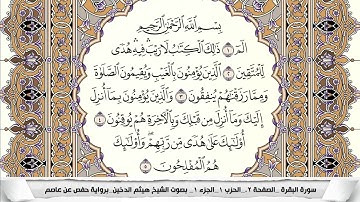 بِسْمِ اللَّهِ الرَّحْمَٰنِ الرَّحِيمِ
الٓمٓ ١ ذَٰلِكَ الْكِتَٰبُ لَا رَيْبَ فِيهِ هُدًى
لِّلْمُتَّقِينَ ٢ الَّذِينَ يُؤْمِنُونَ بِالْغَيْبِ وَيُقِيمُونَ الصَّلَوٰةَ
وَمِمَّا رَزَقْنَٰهُمْ يُنفِقُونَ ٣ وَالَّذِينَ يُؤْمِنُونَ بِمَا أُنزِلَ
إِلَيْكَ وَمَا أُنزِلَ مِن قَبْلِكَ وَبِالْآخِرَةِ هُمْ يُوقِنُونَ ٤
أُولَٰئِكَ عَلَىٰ هُدًى مِّن رَّبِّهِمْ وَأُولَٰئِكَ
هُمُ الْمُفْلِحُونَ ٥
سورة البقرة _الصفحة ٢_ الحزب ١_الجزء ١_ بصوت الشيخ هيثم الدخين_برواية حفص عن عاصم